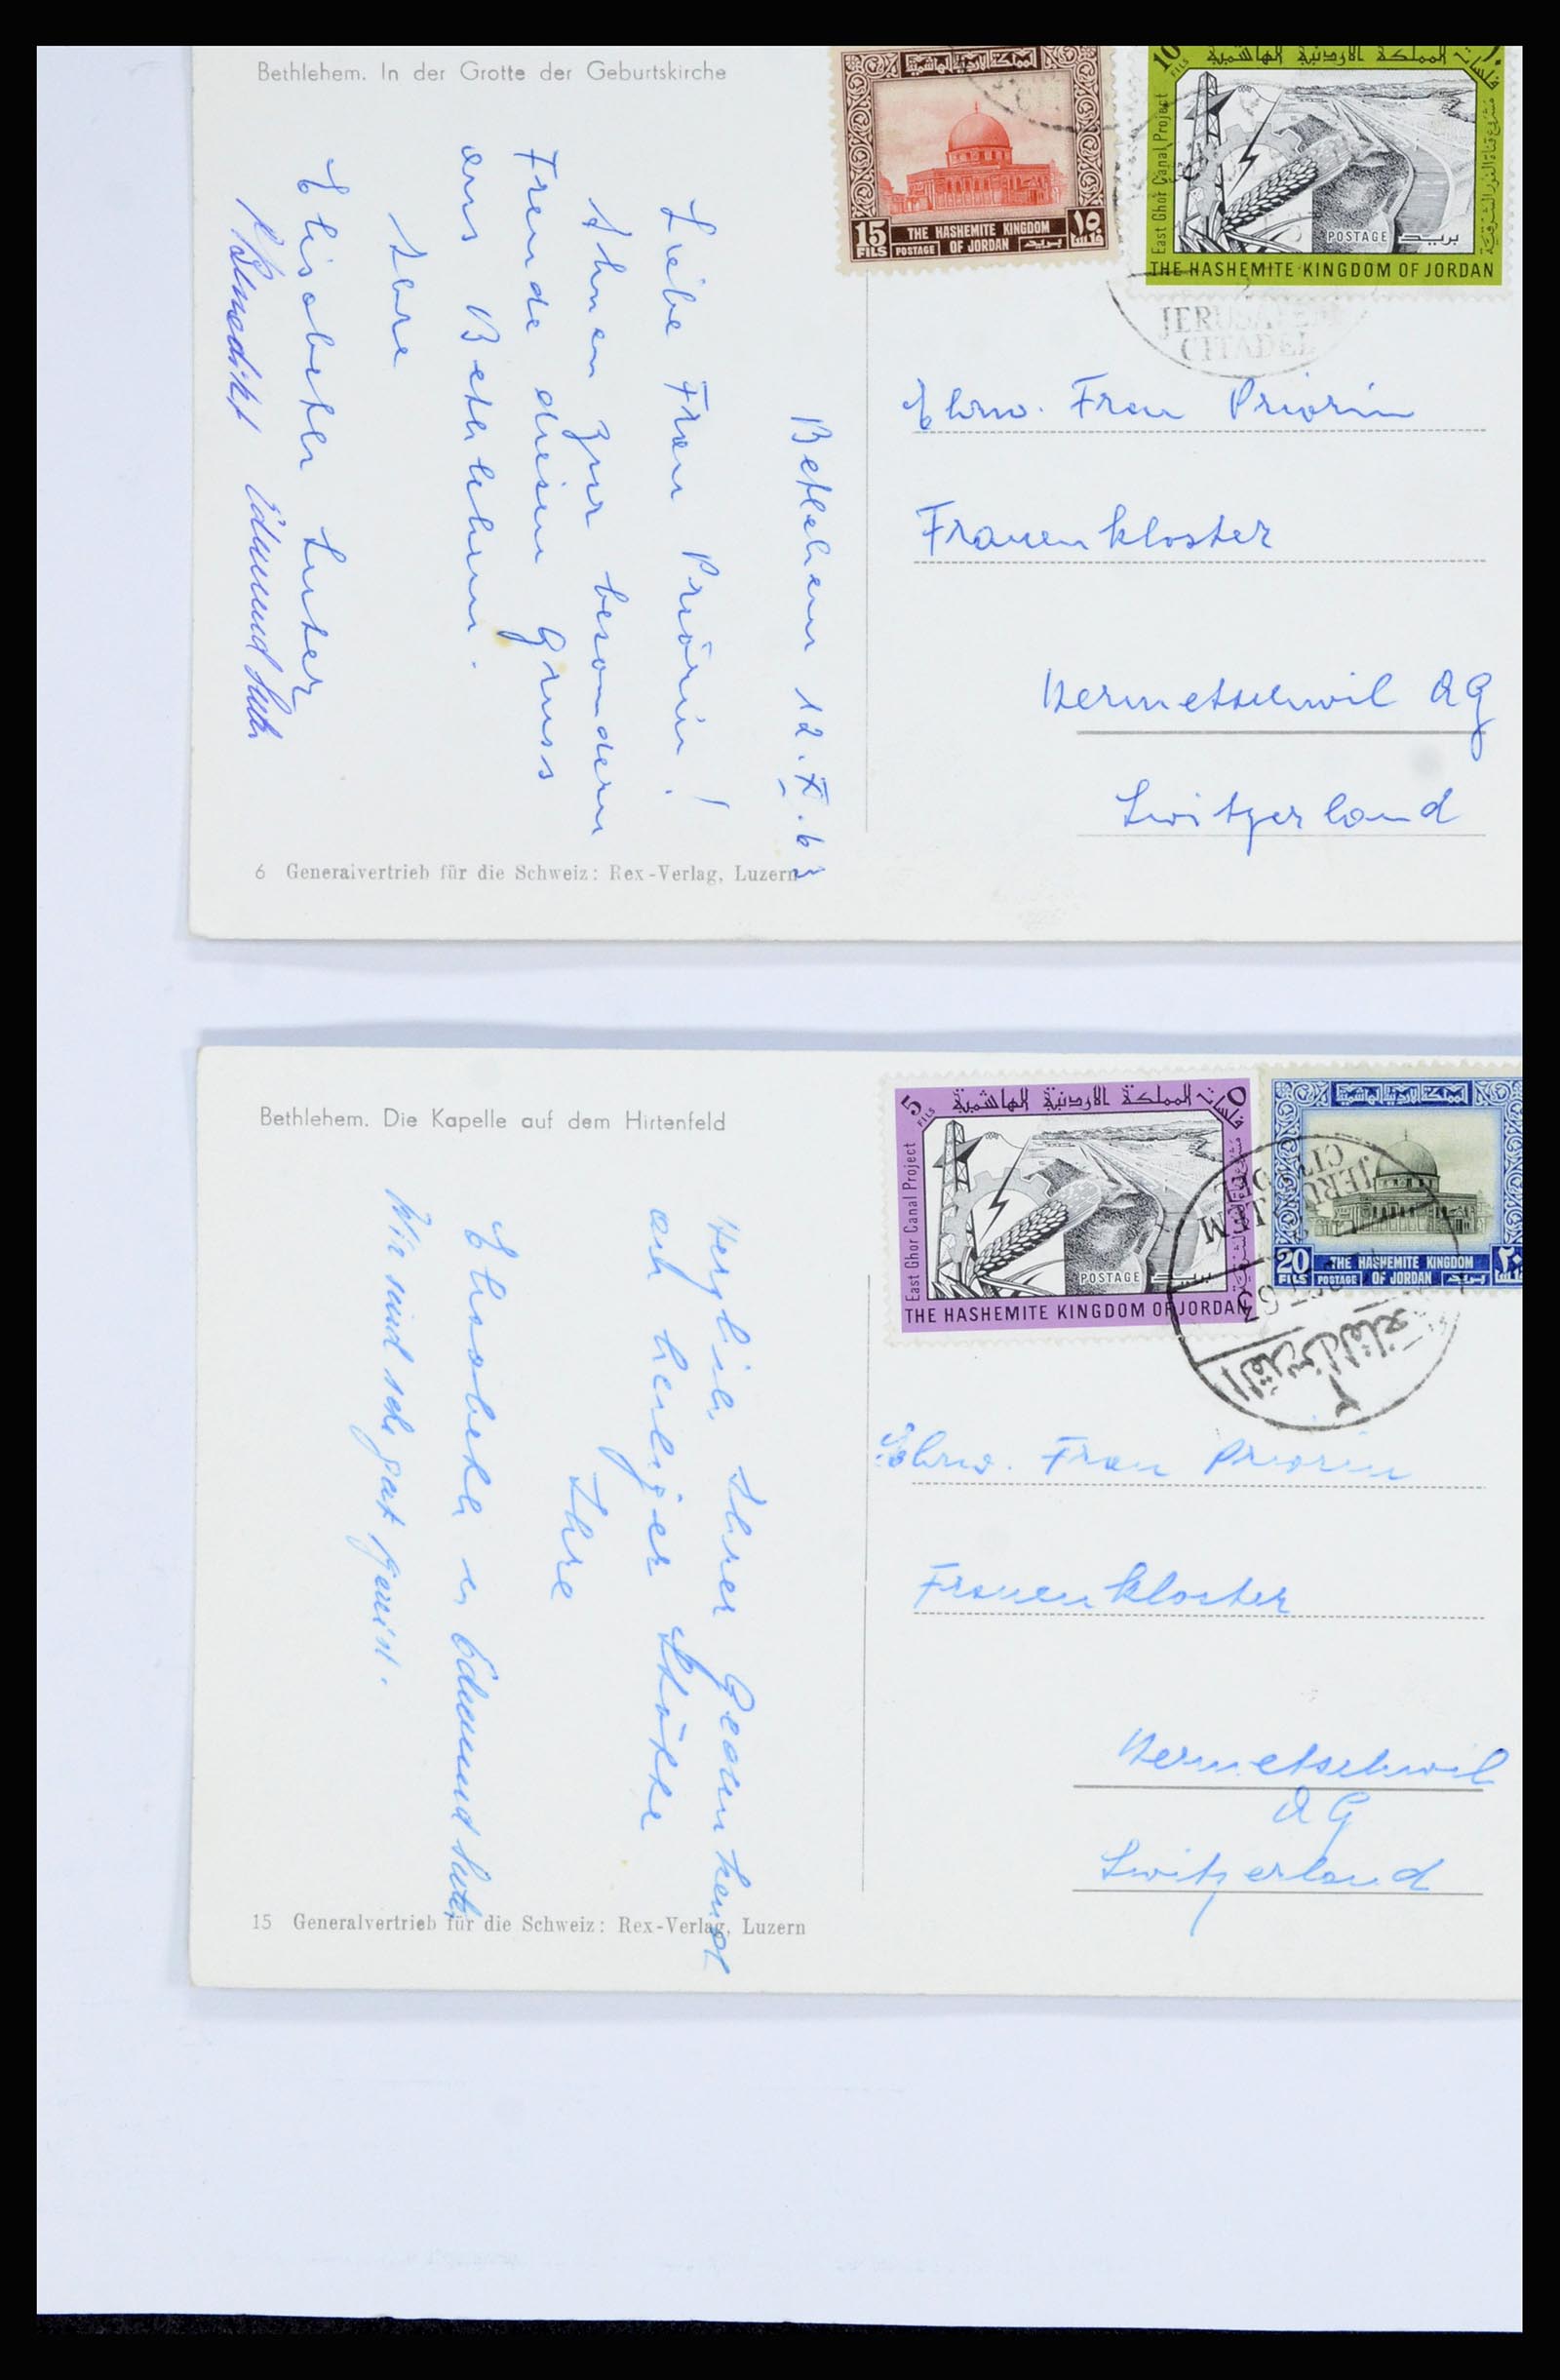 Bethlehem. In der Grotte der Geburtskirche
المملكة الاردنية الهاشمية
15 FILS
THE HASHEMITE KINGDOM OF JORDAN
POSTAGE
بريد
١٥ فلسا
10 FILS
المملكة الاردنية الهاشمية
فلسات ١٠
East Ghor Canal Project
مشروع قناة الغور الشرقية
POSTAGE بريد
THE HASHEMITE KINGDOM OF JORDAN
JERUSALEM
CITADEL
Bethlehem 12.X.63
Liebe Frau Priorin!
Ihnen zur besondern
Freude diesen Gruss
aus Bethlehem.
Ihre
Elisabeth Suter
Benedikt Edmund Suter
Ehrw. Frau Priorin
Frauenkloster
Hermetschwil AG
Switzerland
6 Generalvertrieb für die Schweiz: Rex-Verlag, Luzern
Bethlehem. Die Kapelle auf dem Hirtenfeld
5 FILS
المملكة الاردنية الهاشمية
فلسات ٥
East Ghor Canal Project
مشروع قناة الغور الشرقية
POSTAGE بريد
THE HASHEMITE KINGDOM OF JORDAN
المملكة الاردنية الهاشمية
20 FILS
THE HASHEMITE KINGDOM OF JORDAN
POSTAGE
بريد
٢٠
JERUSALEM
CITADEL
Herzlich Ihrer Gedenkend
an heiliger Stätte
Ihre
Elisabeth u Edmund Suter
Wir sind sehr gut gereist.
Ehrw. Frau Priorin
Frauenkloster
Hermetschwil
AG
Switzerland
15 Generalvertrieb für die Schweiz: Rex-Verlag, Luzern